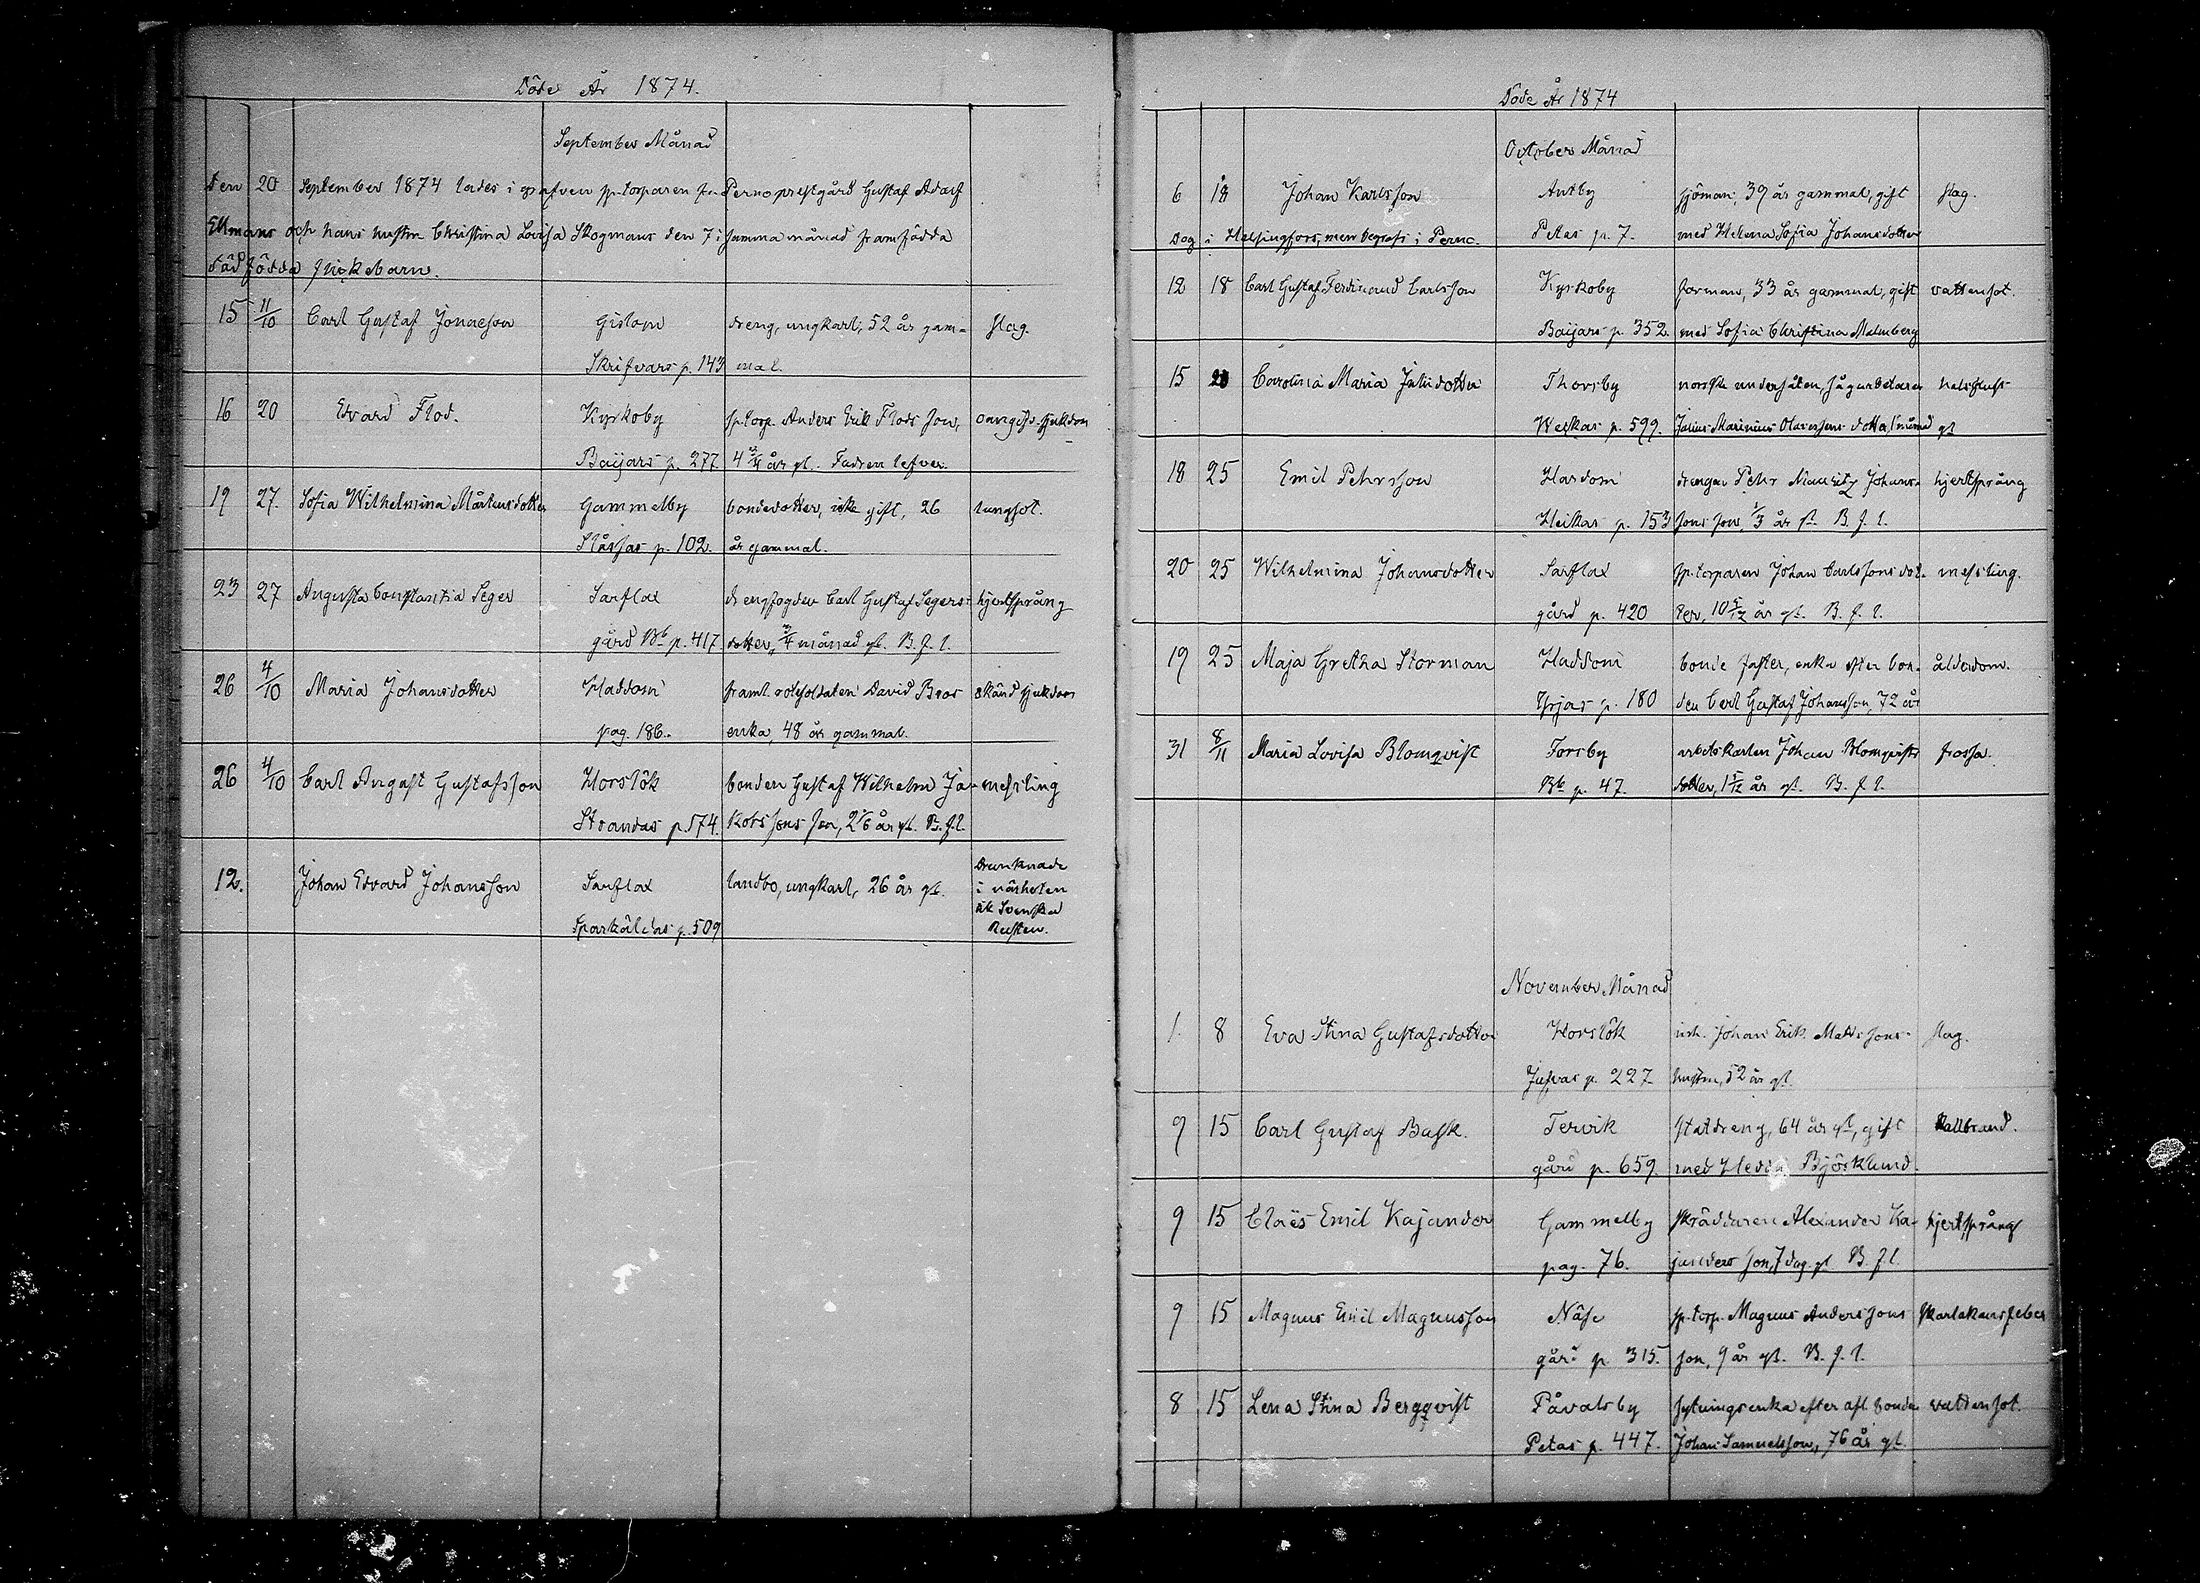 Döde År 1874.
September Månad
Den 20 September 1874 lades i grafven sp.torparen fr. Perno prestgård Gustaf Adolf
Ekmans och hans hustru Christina Lovisa Skogmans den 7 i samma månad framfödda
dödfödda flickebarn.
15 11/10 Carl Gustaf Jonaeson Gislom dreng, ungkarl, 52 år gam- slag.
Skrifvars p. 143 mal.
16 20 Edvard Flod. Kyrkoby sp.torp. Anders Erik Flods son, sjukdom
Baijars p. 277 4 3/4 år gl. Fadren lefver.
19 27. Sofia Wilhelmina Mårtensdotter Gammelby bondedotter, icke gift, 26 lungsot.
p. 102. år gammal.
23 27 Augusta Constantia Seger Sarflax drengfogden Carl Gustaf Segers hjertsprång
gård Bb p. 417 dotter, 3/4 månad gl. B. f. l.
26 4/10 Maria Johansdotter Haddom framl. rotesoldaten David Bros okänd sjukdom
pag. 186. enka, 48 år gammal.
26 4/10 Carl August Gustafsson Horslök bonden Gustaf Wilhelm Ja- messling
Strandas p. 574. kobssons son, 2 1/6 år gl. B. f. l.
12. Johan Edvard Johansson Sarflax landbo, ungkarl, 26 år gl. Drunknade
i närheten
Svenska
Kusten.
Sparkälas p. 509
Döde År 1874
October Månad
6 18 Johan Karlsson Antby sjöman, 39 år gammal, gift slag.
Dog i Helsingfors, men begrofs i Perno. Petas p. 7. med Helena Sofia Johansdotter
12 18 Carl Gustaf Ferdinand Carlsson Kyrkoby forman, 33 år gammal, gift vattensot.
Baijars p. 352. med Sofia Christina Malmberg
15 20 Carolina Maria Julidotter Thorsby norske undersåten, sågarbetaren halsfluss
Weckas p. 599. Julius Marinius Olavessens dotter, 1 månad gl
18 25 Emil Pehrsson Hardom drengen Pehr Mauritz Johans- hjertsprång
Heikas p. 153 sons son, 1/3 år gl. B. f. l.
20 25 Wilhelmina Johansdotter Sarflax sp.torparen Johan Carlssons dot- messling.
gård p. 420 ter, 10 5/12 år gl. B. f. l.
19 25 Maja Gretha Storman Haddom bonde faster, enka efter bon- ålderdom.
Yrjas p. 180 den Carl Gustaf Johansson, 72 år
31 8/11 Maria Lovisa Blomqvist Forsby arbetskarlen Johan Blomqvists frossa.
Bb p. 47. dotter, 1 5/12 år gl. B. f. l.
November Månad
1 8 Eva Stina Gustafsdotter Horslök inh. Johan Erik Mattssons slag.
Jusvas p. 227. hustru, 52 år gl.
9 15 Carl Gustaf Bask. Tervik statdreng, 64 år gl, gift Kallbrand.
gård p. 659. med Hedda Björklund.
9 15 Claës Emil Kajander Gammelby skräddaren Alexander Ka- hjertsprång
pag. 76. janders son, 7 dag. gl B. f. l.
9 15 Magnus Emil Magnusson Näse sp.torp. Magnus Anderssons skarlakansfeber
gård p. 315. son, 9 år gl. B. f. l.
8 15 Lena Stina Bergqvist Påvalsby sytningsenka efter afl. bonden vattensot.
Petas p. 447. Johan Samuelsson, 76 år gl.